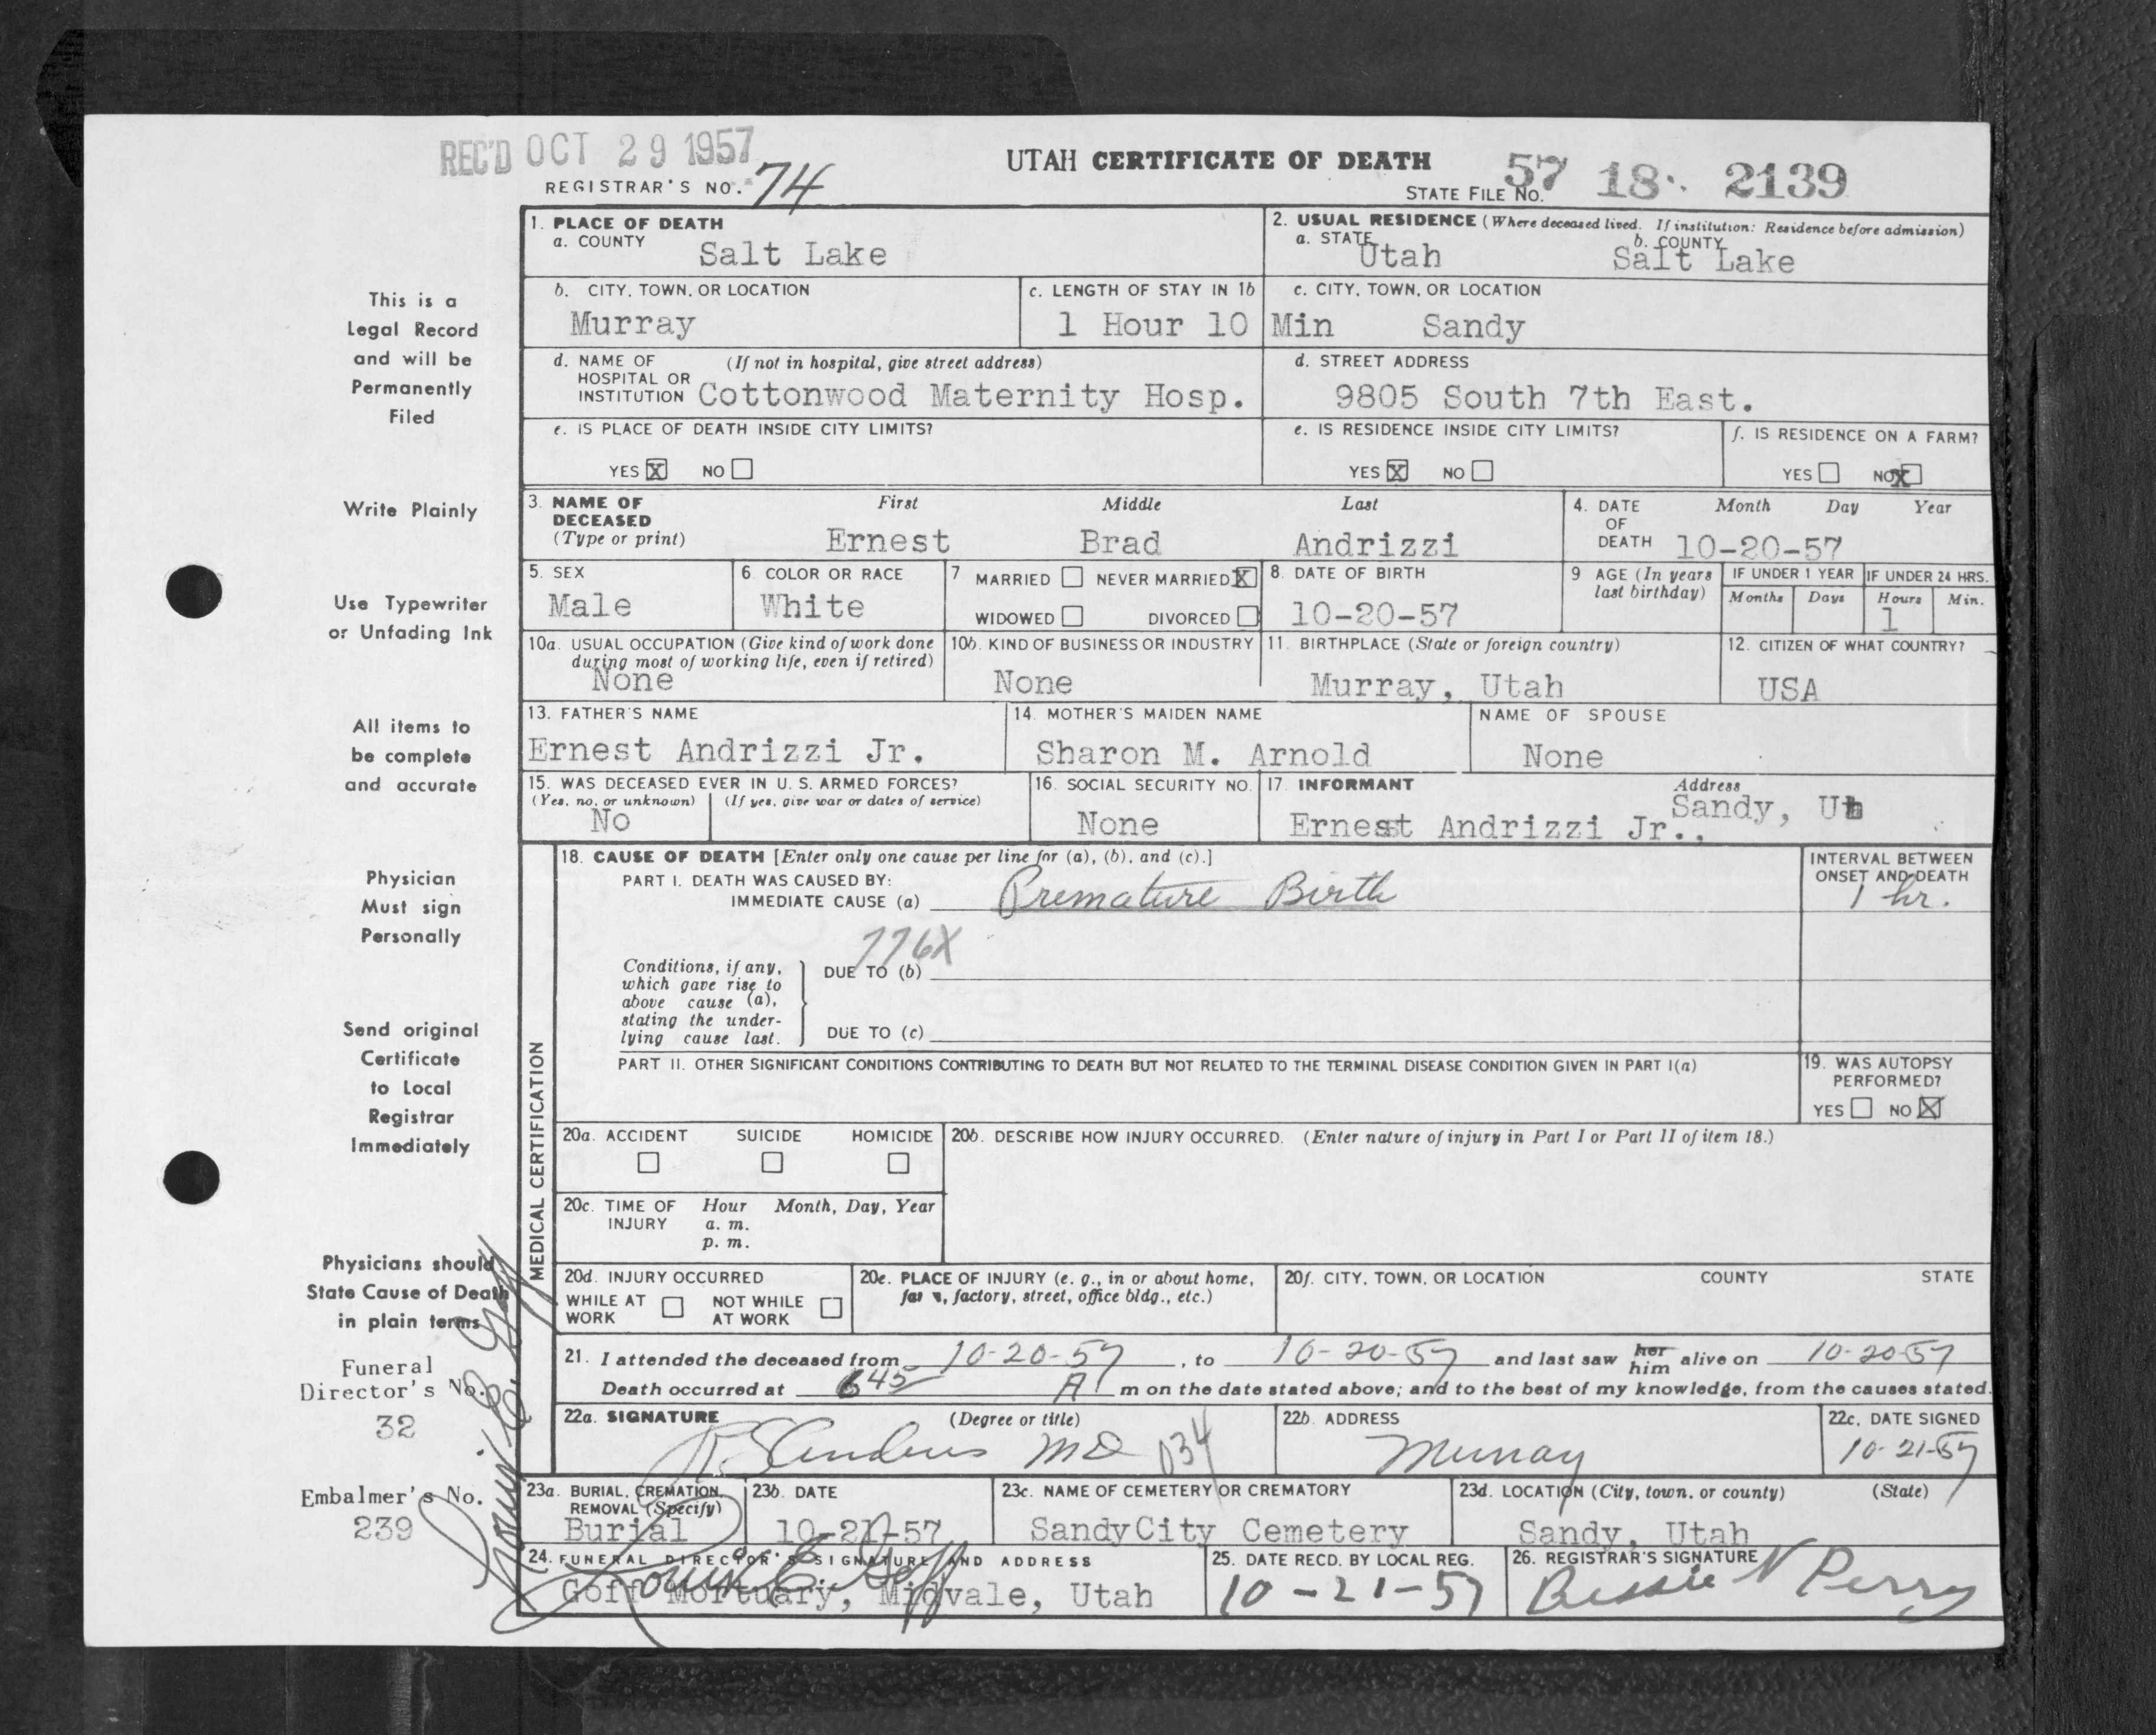 REC'D OCT 29 1957
REGISTRAR'S NO. 74
UTAH CERTIFICATE OF DEATH
STATE FILE NO. 57 18 2139
This is a
Legal Record
and will be
Permanently
Filed
Write Plainly
Use Typewriter
or Unfading Ink
All items to
be complete
and accurate
Physician
Must sign
Personally
Send original
Certificate
to Local
Registrar
Immediately
Physicians should
State Cause of Death
in plain terms
Funeral
Director's No.
32
Embalmer's No.
239
Louis C. Goff
1. PLACE OF DEATH
a. COUNTY Salt Lake
2. USUAL RESIDENCE (Where deceased lived. If institution: Residence before admission)
a. STATE Utah b. COUNTY Salt Lake
b. CITY, TOWN, OR LOCATION
Murray
c. LENGTH OF STAY IN 1b
1 Hour 10 Min
c. CITY, TOWN, OR LOCATION
Sandy
d. NAME OF (If not in hospital, give street address)
HOSPITAL OR
INSTITUTION Cottonwood Maternity Hosp.
d. STREET ADDRESS
9805 South 7th East.
e. IS PLACE OF DEATH INSIDE CITY LIMITS?
YES X NO
e. IS RESIDENCE INSIDE CITY LIMITS?
YES X NO
f. IS RESIDENCE ON A FARM?
YES NO X
3. NAME OF DECEASED (Type or print)
First Middle Last
Ernest Brad Andrizzi
4. DATE OF DEATH Month Day Year
10-20-57
5. SEX
Male
6. COLOR OR RACE
White
7 MARRIED NEVER MARRIED X
WIDOWED DIVORCED
8. DATE OF BIRTH
10-20-57
9 AGE (In years last birthday)
IF UNDER 1 YEAR IF UNDER 24 HRS.
Months Days Hours Min.
1
10a. USUAL OCCUPATION (Give kind of work done
during most of working life, even if retired)
None
10b. KIND OF BUSINESS OR INDUSTRY
None
11. BIRTHPLACE (State or foreign country)
Murray, Utah
12. CITIZEN OF WHAT COUNTRY?
USA
13. FATHER'S NAME
Ernest Andrizzi Jr.
14. MOTHER'S MAIDEN NAME
Sharon M. Arnold
NAME OF SPOUSE
None
15. WAS DECEASED EVER IN U. S. ARMED FORCES?
(Yes, no, or unknown) (If yes, give war or dates of service)
No
16. SOCIAL SECURITY NO.
None
17. INFORMANT Address
Ernest Andrizzi Jr., Sandy,
18. CAUSE OF DEATH [Enter only one cause per line for (a), (b), and (c).]
PART I. DEATH WAS CAUSED BY:
IMMEDIATE CAUSE (a) Premature Birth
INTERVAL BETWEEN
ONSET AND DEATH
1 hr.
776X
Conditions, if any,
which gave rise to
above cause (a),
stating the under-
lying cause last.
DUE TO (b)
DUE TO (c)
PART II. OTHER SIGNIFICANT CONDITIONS CONTRIBUTING TO DEATH BUT NOT RELATED TO THE TERMINAL DISEASE CONDITION GIVEN IN PART I(a)
19. WAS AUTOPSY
PERFORMED?
YES NO X
MEDICAL CERTIFICATION
20a. ACCIDENT SUICIDE HOMICIDE
20b. DESCRIBE HOW INJURY OCCURRED. (Enter nature of injury in Part I or Part II of item 18.)
20c. TIME OF INJURY Hour Month, Day, Year
a. m.
p. m.
20d. INJURY OCCURRED
WHILE AT WORK NOT WHILE AT WORK
20e. PLACE OF INJURY (e. g., in or about home,
farm, factory, street, office bldg., etc.)
20f. CITY, TOWN, OR LOCATION COUNTY STATE
21. I attended the deceased from 10-20-57, to 10-20-57 and last saw her him alive on 10-20-57
Death occurred at 645 A m on the date stated above; and to the best of my knowledge, from the causes stated.
22a. SIGNATURE (Degree or title)
MD 034
22b. ADDRESS
Murray
22c. DATE SIGNED
10-21-57
23a. BURIAL, CREMATION,
REMOVAL (Specify)
Burial
23b. DATE
10-21-57
23c. NAME OF CEMETERY OR CREMATORY
Sandy City Cemetery
23d. LOCATION (City, town, or county) (State)
Sandy, Utah
24. FUNERAL DIRECTOR'S SIGNATURE AND ADDRESS
Louis C. Goff
Goff Mortuary, Midvale, Utah
25. DATE RECD. BY LOCAL REG.
10-21-57
26. REGISTRAR'S SIGNATURE
Bessie N Perry